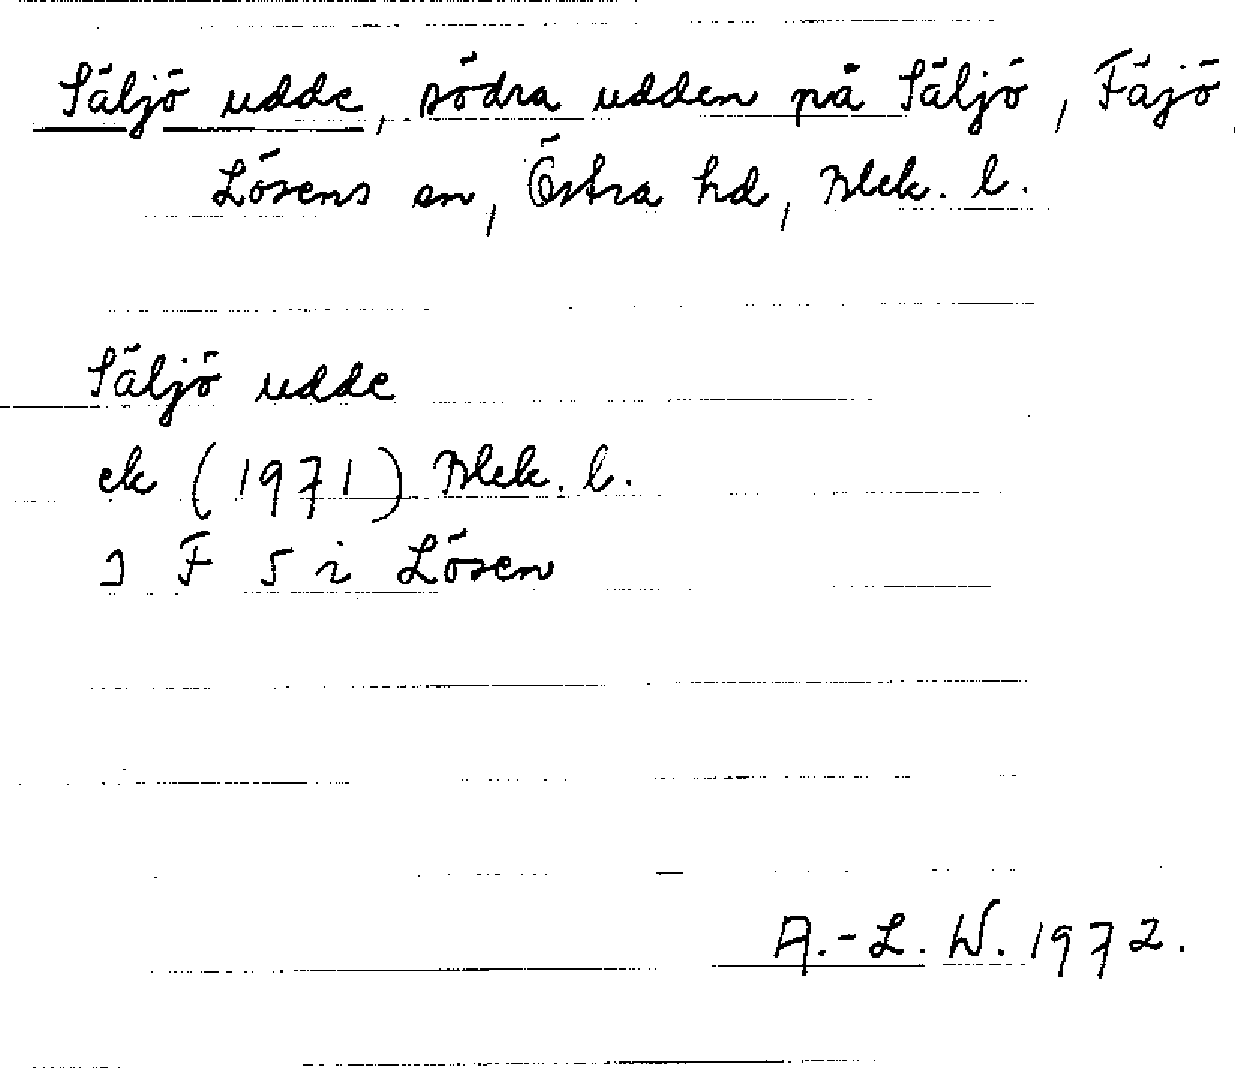 Säljö udde, södra udden på Säljö, Fäjö
Lösens sn, Östra hd, Blek. l.
Säljö udde
ek (1971) Blek. l.
3 F 5 i Lösen
A.-L. W. 1972.